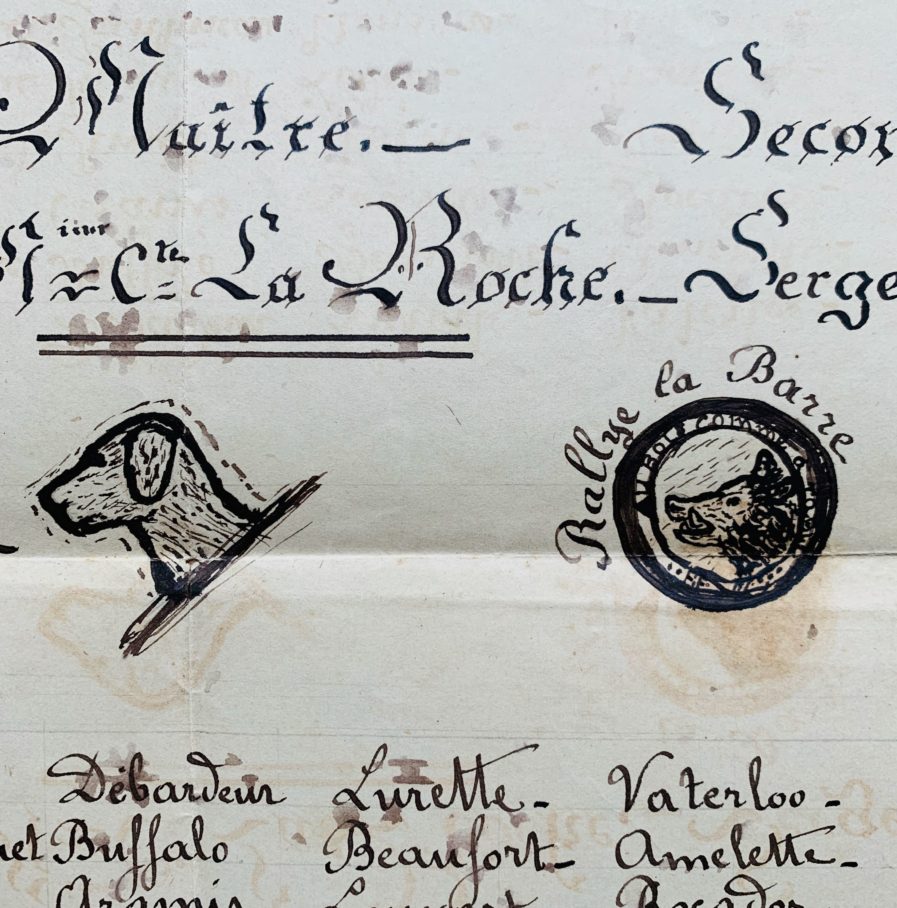 Maître. — Secon
Mr le Cte La Roche. — Serge
Rallye la Barre
AU BOIS COMME
Débardeur Lurette - Vaterloo -
et Buffalo Beaufort - Amelette -
Aramis